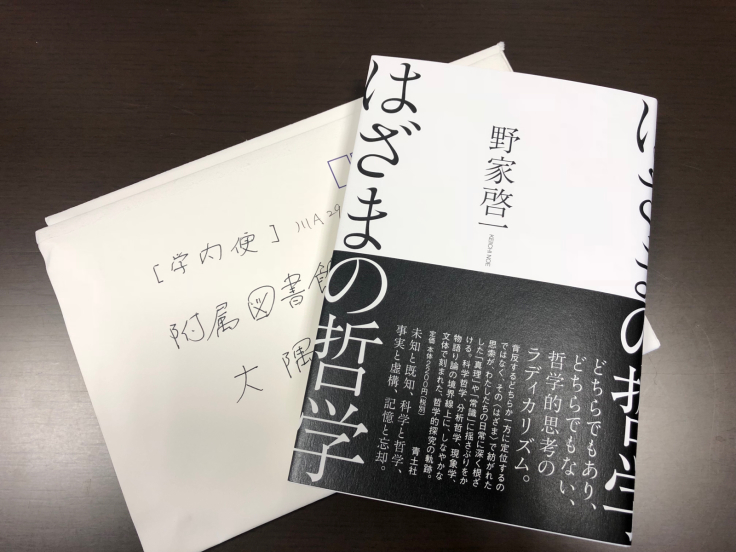 はざまの哲学
野家啓一
KEIICHI NOE
どちらでもあり、
どちらでもない、
哲学的思考の
ラディカリズム。
背反するどちらか一方に定位するの
ではなく、その〈はざま〉で紡がれた
思索が、わたしたちの日常に深く根ざ
した「真理」や「常識」に揺さぶりをか
ける。科学哲学、分析哲学、現象学、
物語り論の境界線上に、しなやかな
文体で刻まれた、哲学的探究の軌跡。
定価 本体2200円(税別)
青土社
未知と既知、科学と哲学、
事実と虚構、記憶と忘却。
[学内便] 川A29
附属図書館
大隅